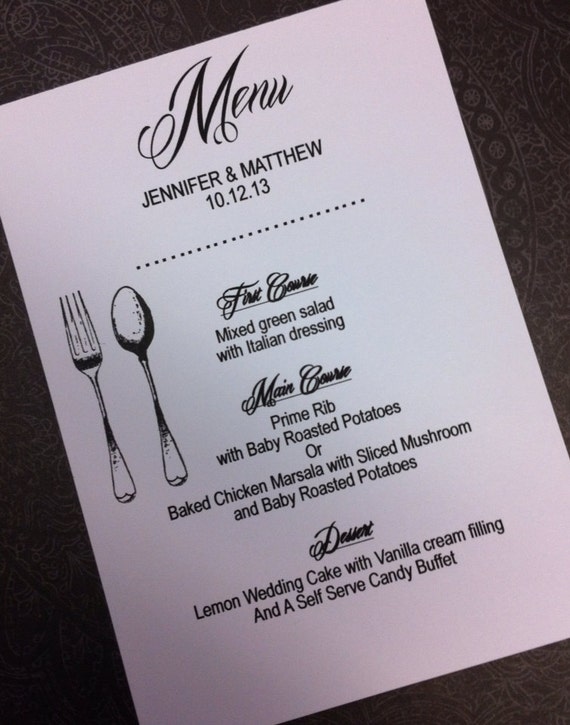 Menu
JENNIFER & MATTHEW
10.12.13
First Course
Mixed green salad
with Italian dressing
Main Course
Prime Rib
with Baby Roasted Potatoes
Or
Baked Chicken Marsala with Sliced Mushroom
and Baby Roasted Potatoes
Dessert
Lemon Wedding Cake with Vanilla cream filling
And A Self Serve Candy Buffet